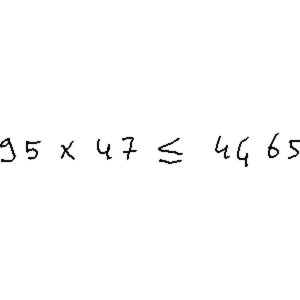 95 × 47 ≤ 4465